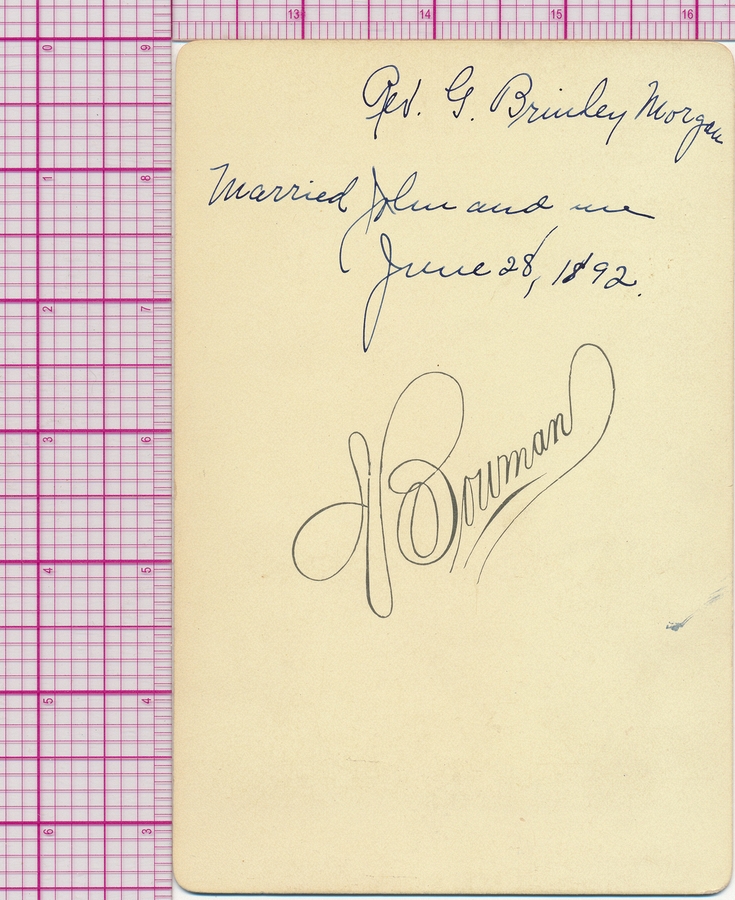 13 14 15 16
0 9
1 8
2 7
3 6
4 5
5 4
6 3
Rev. G. Brinley Morgan
Married John and me
June 28, 1892.
H Bowman